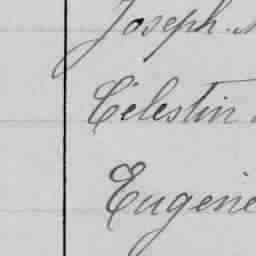 Joseph.
Célestin
Eugène